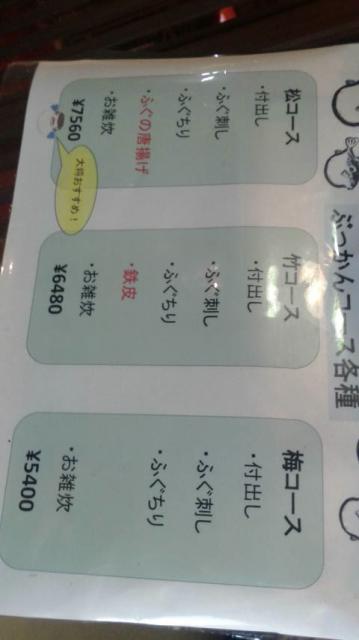 ぶつかんコース各種
松コース
・付出し
・ふぐ刺し
・ふぐちり
・ふぐの唐揚げ
・お雑炊
¥7560
大将おすすめ！
竹コース
・付出し
・ふぐ刺し
・ふぐちり
・鉄皮
・お雑炊
¥6480
梅コース
・付出し
・ふぐ刺し
・ふぐちり
・お雑炊
¥5400